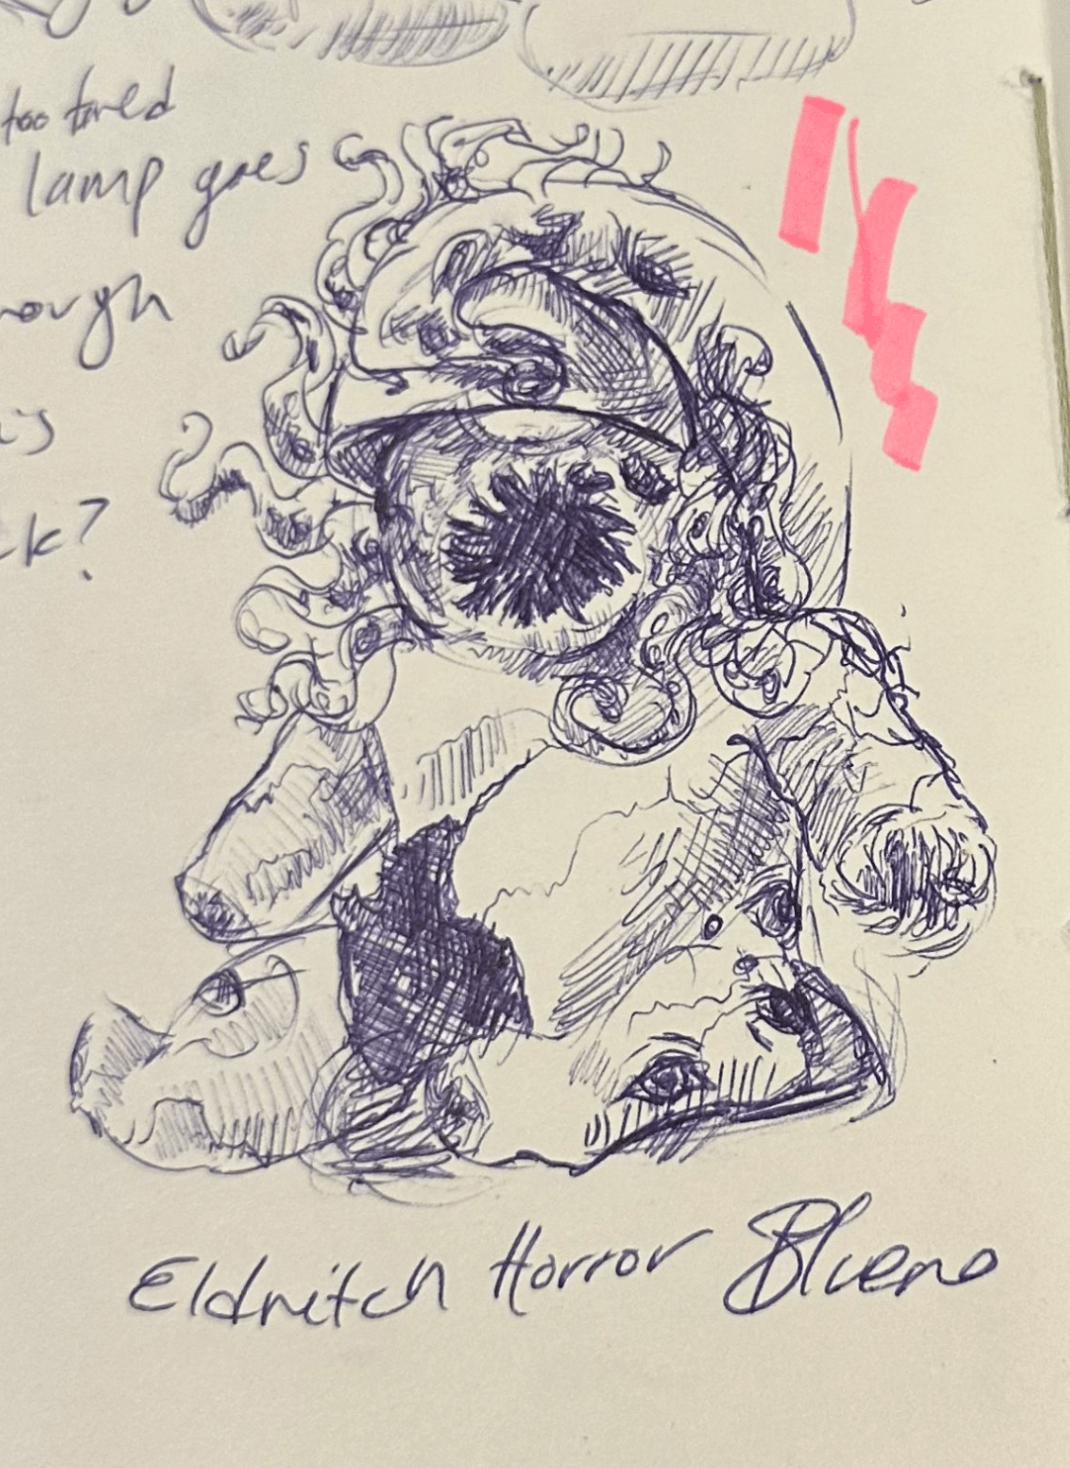 too tired
lamp goes
is
ck?
Eldritch Horror Blueno